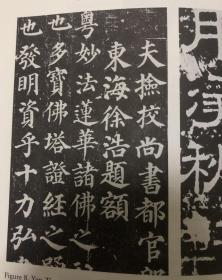 月
秋
夫撿挍尚書都官
東海徐浩題額
粵妙法蓮華諸佛之
也多寶佛塔證經之
也發明資乎十力弘
Figure 8. Yan